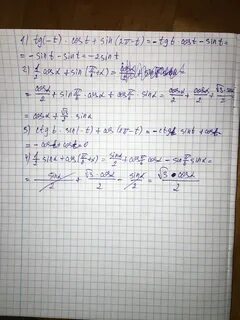 1) tg(-t) · cost + sin(2π-t) = -tgt · cost - sint =
= -sint - sint = -2sint
2) 1/2 cosα + sin(π/6+α) = cosα/2
= cosα/2 + sin π/6 · cosα + cos π/6 · sinα = cosα/2 + cosα/2 + √3·sinα/2
cosα + √3/2 · sinα
3) ctgt · sin(-t) + cos(2π-t) = -ctgt · sint + cost=
-cost + cost = 0
4) 1/2 sinα + cos(π/6+α) = sinα/2 + cos π/6 cosα - sin π/6 sinα =
= sinα/2 + √3·cosα/2 - sinα/2 = √3 · cosα/2